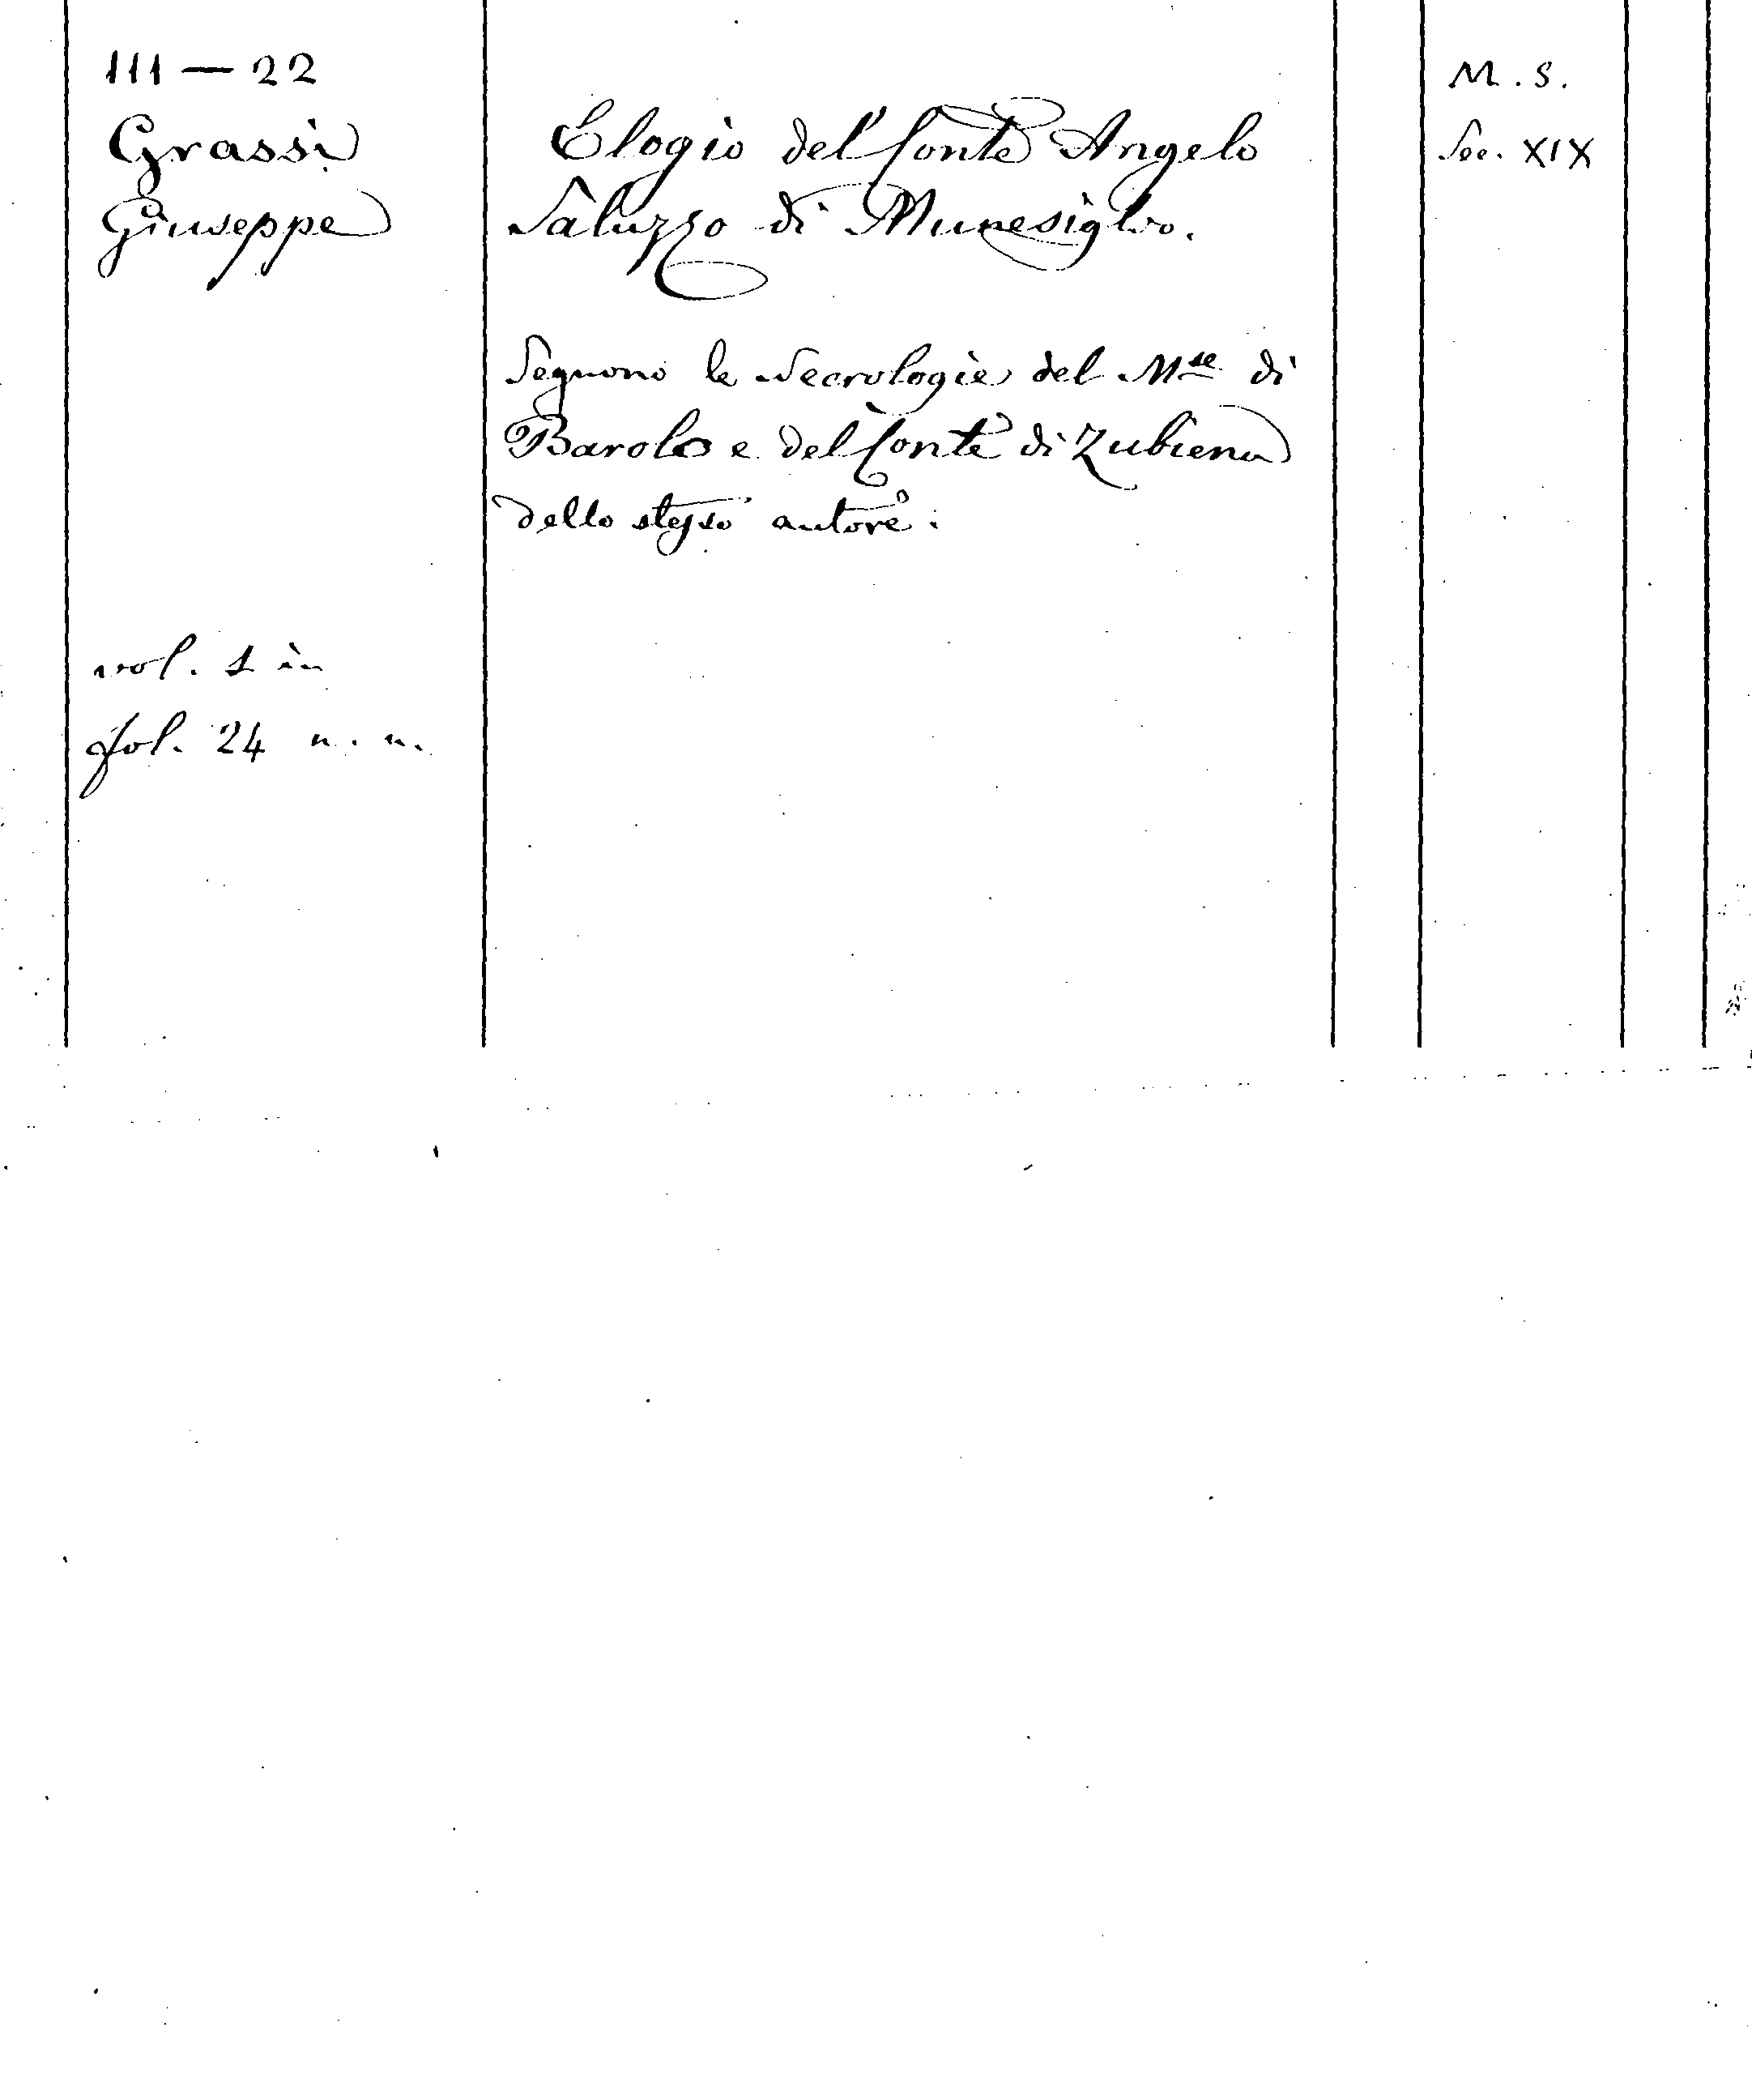 III — 22
Grassi
Giuseppe
vol. 1 in
fol. 24 n. n.
Elogio del Conte Angelo
Saluzzo di Munesiglio.
Seguono le Necrologie del Mse di
Barolo e del Conte di Zubiena
dello stesso autore.
M. S.
Sec. XIX